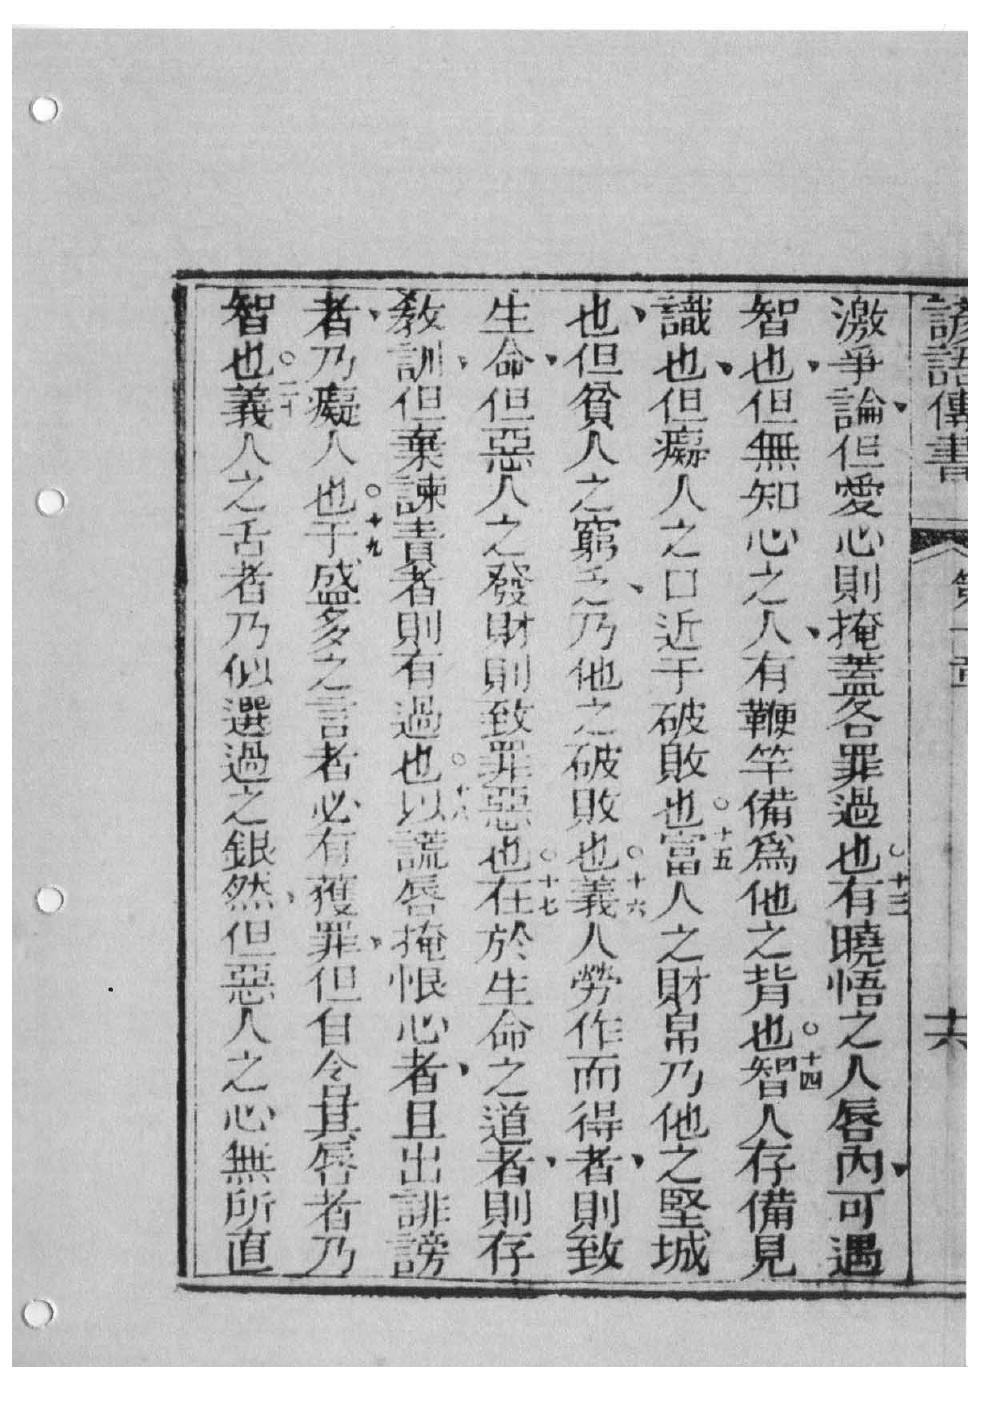 諺語傳書 第十章 十六
激爭論、但愛心則掩蓋各罪過也○十三有曉悟之人唇內、可遇
智也、但無知心之人、有鞭竿備爲他之背也○十四智人存備見
識也、但癡人之口近于破敗也○十五富人之財帛乃他之堅城
也、但貧人之窮乏、乃他之破敗也○十六義人勞作而得者、則致
生命、但惡人之發財則致罪惡也○十七在於生命之道者、則存
教訓、但棄諫責者則有過也○十八以謊唇掩恨心者、且出誹謗
者、乃癡人也○十九于盛多之言者必有獲罪、但自令其唇者乃
智也○二十義人之舌者乃似選過之銀然、但惡人之心無所直